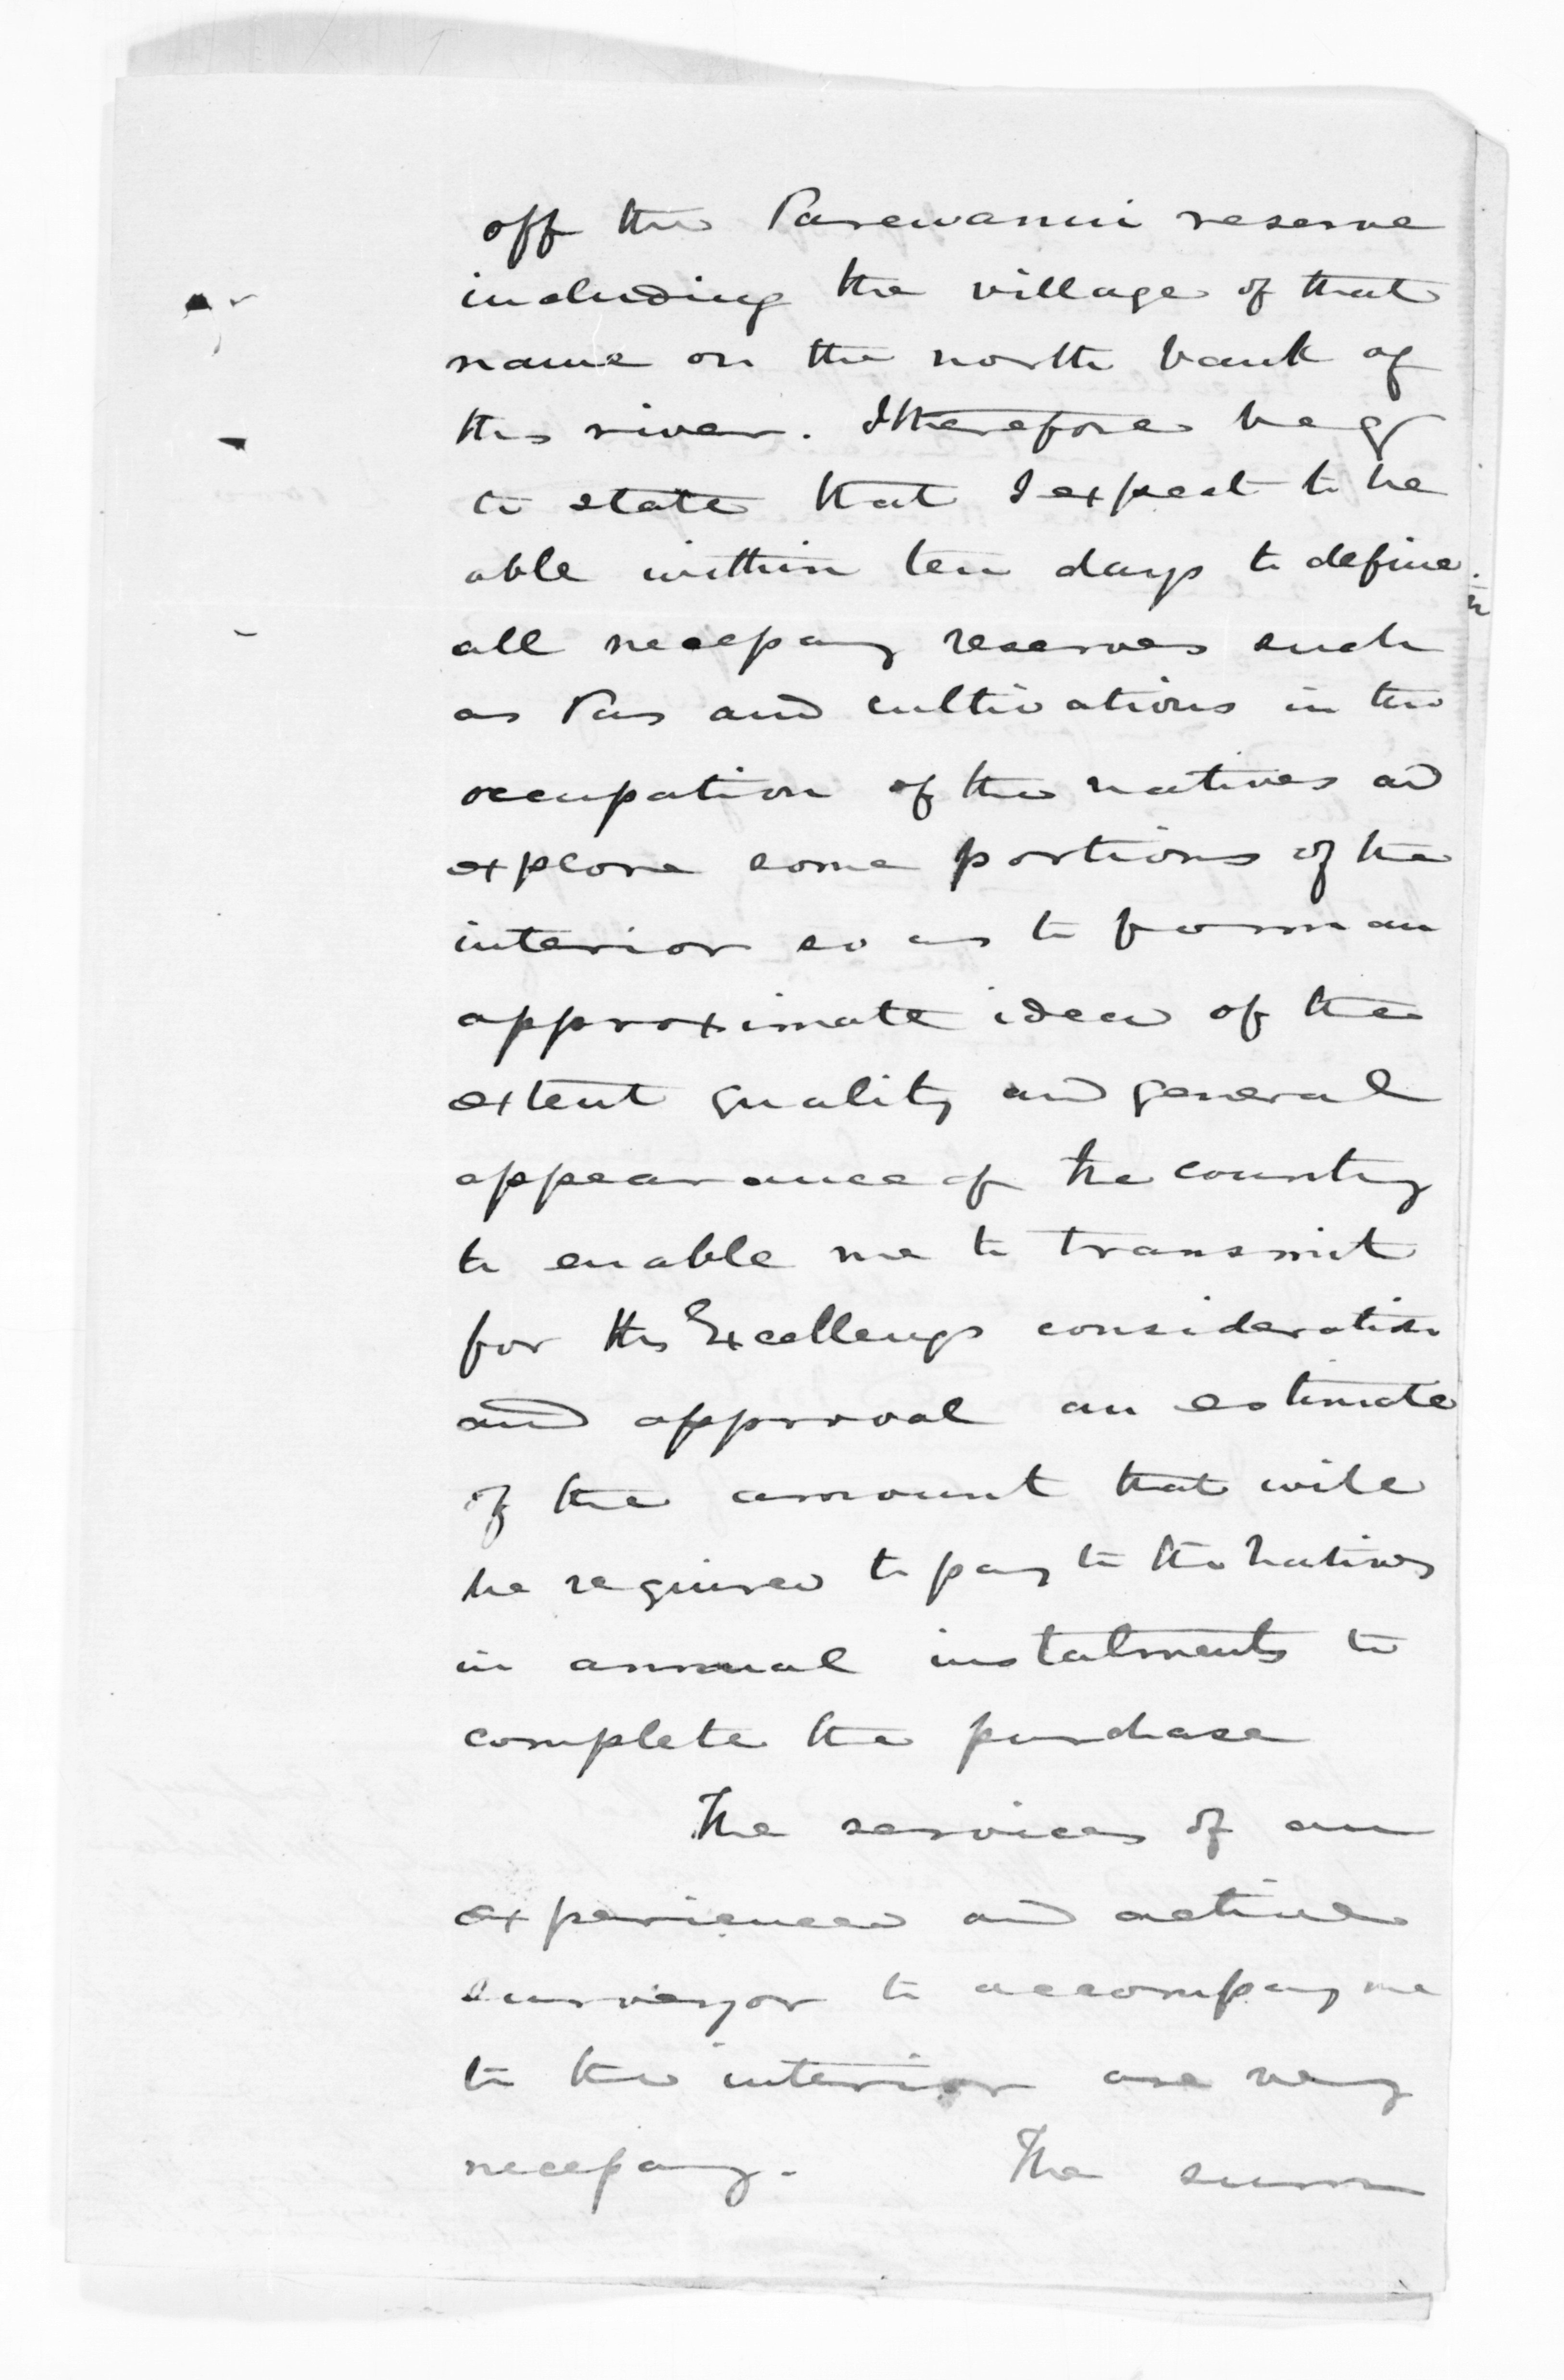 off the Parewanui reserve
including the village of that
name on the north bank of
this river. I therefore beg
to state that I expect to be
able within ten days to define
all necessary reserves such
as Pas and cultivations in the
occupation of the natives and
explore some portions of the
interior so as to form an
approximate idea of the
extent quality and general
appearance of the country
to enable me to transmit
for His Excellencys consideration
and approval an estimate
of the amount that will
be required to pay to the natives
in annual instalments to
complete the purchase
The services of an
experienced and active
surveyor to accompany me
to the interior are very
necessary. The sum